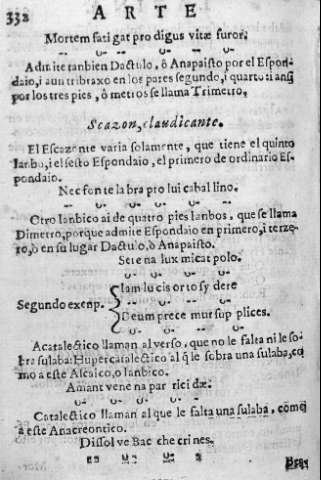 332 ARTE
Mortem fati gat pro digus vitæ furor.
Admite tanbien Dactulo, ô Anapaisto por el Espon-
daio, i aun tribraxo en los pares segundo, i quarto: i ansi
por los tres pies, ô metros se llama Trimetro,
Scazon, claudicante.
El Escazonte varia solamente, que tiene el quinto
Ianbo, i el sesto Espondaio, el primero de ordinario Es-
pondaio.
Nec fon te la bra pro lui cabal lino.
Otro Ianbico ai de quatro pies Ianbos, que se llama
Dimetro, porque admite Espondaio en primero, i terze-
ro, ô en su lugar Dactulo, ô Anapaisto.
Sere na lux micat polo.
Segundo exenp.
Iam lu cis orto sy dere
Deum prece mur sup plices.
Acatalectico llaman al verso, que no le falta ni le so-
bra sulaba: Hupercatalectico al q̃ le sobra una sulaba, co
mo a este Alcaico, o Ianbico.
Amant vene na par rici dæ.
Catalectico llaman al que le falta una sulaba, como
a este Anacreontico.
Dissol ve Bac che crines.